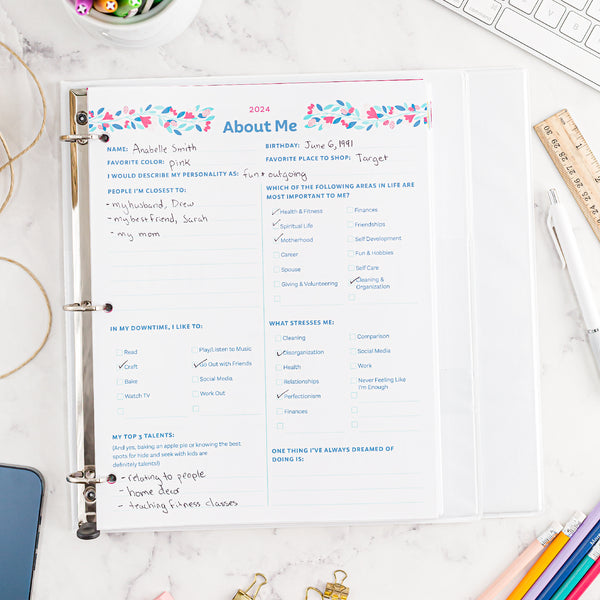 2024
About Me
NAME: Anabelle Smith
BIRTHDAY: June 6, 1991
FAVORITE COLOR: pink
FAVORITE PLACE TO SHOP: Target
I WOULD DESCRIBE MY PERSONALITY AS: fun + outgoing
PEOPLE I'M CLOSEST TO:
- my husband, Drew
- my best friend, Sarah
- my mom
WHICH OF THE FOLLOWING AREAS IN LIFE ARE
MOST IMPORTANT TO ME?
Health & Fitness
Spiritual Life
Motherhood
Career
Spouse
Giving & Volunteering
Finances
Friendships
Self Development
Fun & Hobbies
Self Care
Cleaning &
Organization
IN MY DOWNTIME, I LIKE TO:
Read
Craft
Bake
Watch TV
Play/Listen to Music
Go Out with Friends
Social Media
Work Out
WHAT STRESSES ME:
Cleaning
Disorganization
Health
Relationships
Perfectionism
Finances
Comparison
Social Media
Work
Never Feeling Like
I'm Enough
MY TOP 3 TALENTS:
(And yes, baking an apple pie or knowing the best
spots for hide and seek with kids are
definitely talents!)
- relating to people
- home decor
- teaching fitness classes
ONE THING I'VE ALWAYS DREAMED OF
DOING IS: